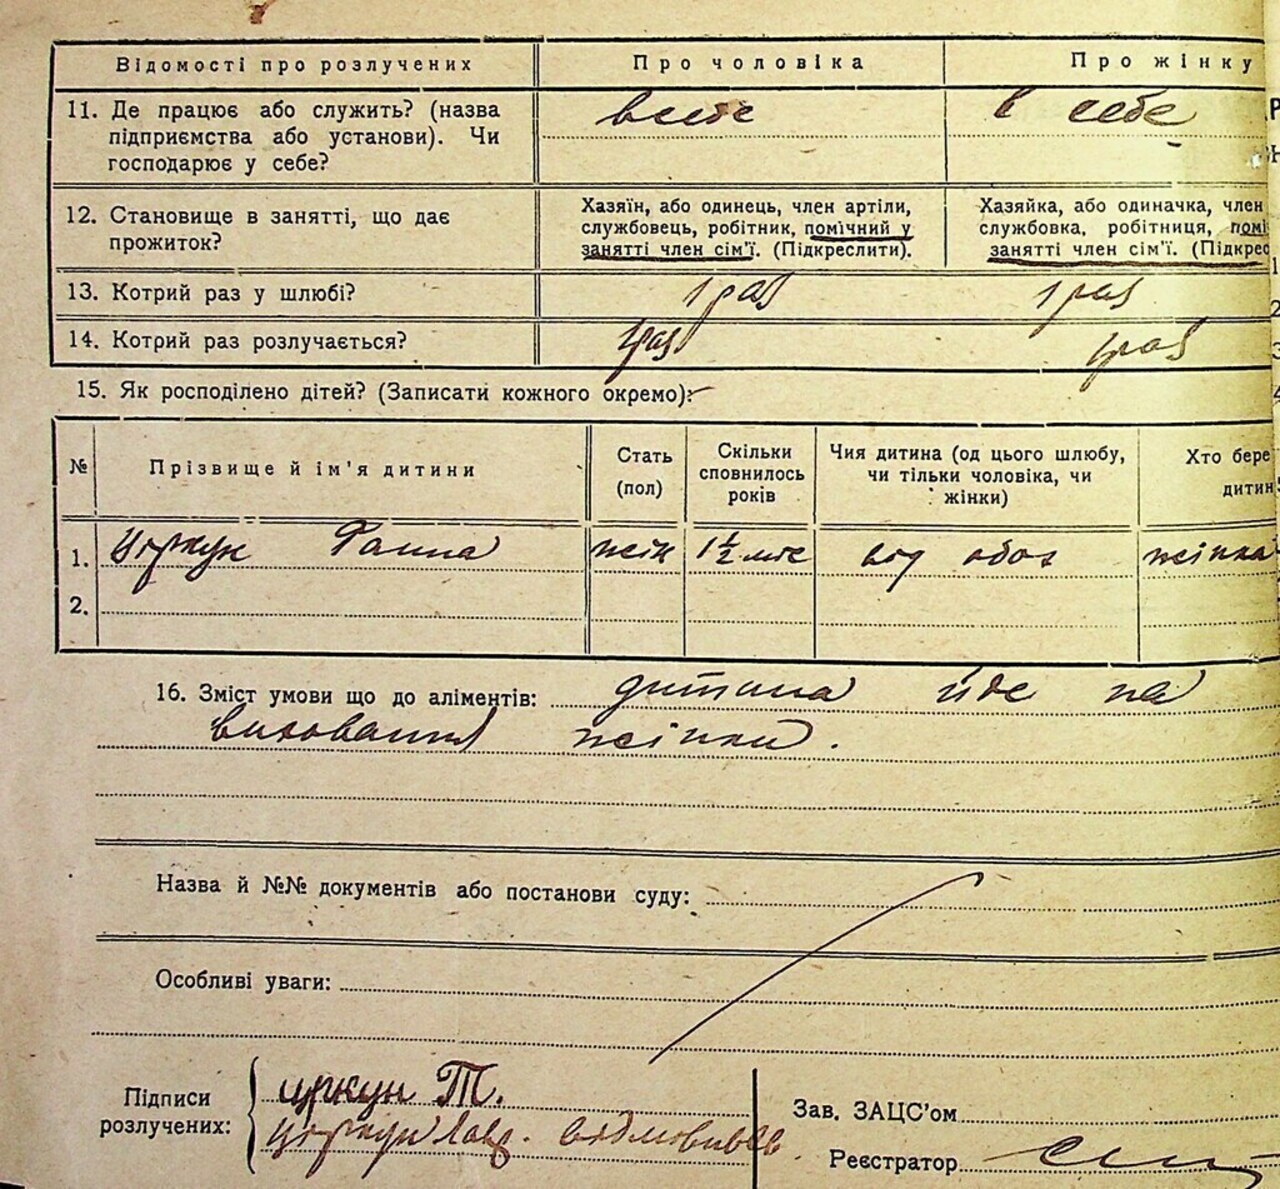 Відомості про розлучених Про чоловіка Про жінку
11. Де працює або служить? (назва підприємства або установи). Чи господарює у себе?
в себе в себе
12. Становище в занятті, що дає прожиток?
Хазяїн, або одинець, член артіли, службовець, робітник, помічний у занятті член сім'ї. (Підкреслити).
Хазяйка, або одиначка, член
службовка, робітниця, помі
занятті член сім'ї. (Підкрес
13. Котрий раз у шлюбі? 1 раз 1 раз
14. Котрий раз розлучається? 1 раз 1 раз
15. Як росподілено дітей? (Записати кожного окремо):
№ Прізвище й ім'я дитини Стать (пол) Скільки сповнилось років Чия дитина (од цього шлюбу, чи тільки чоловіка, чи жінки) Хто бере дитин
1. Цюркун Ганна жін 1½ міс од обох жінка
2.
16. Зміст умови що до аліментів: дитина йде на
виховання жінки.
Назва й №№ документів або постанови суду:
Особливі уваги:
Підписи розлучених:
Цюркун Т.
Цюркун Лавр. відмовивсь.
Зав. ЗАЦС'ом
Реєстратор